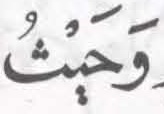 وَحَيْثُ